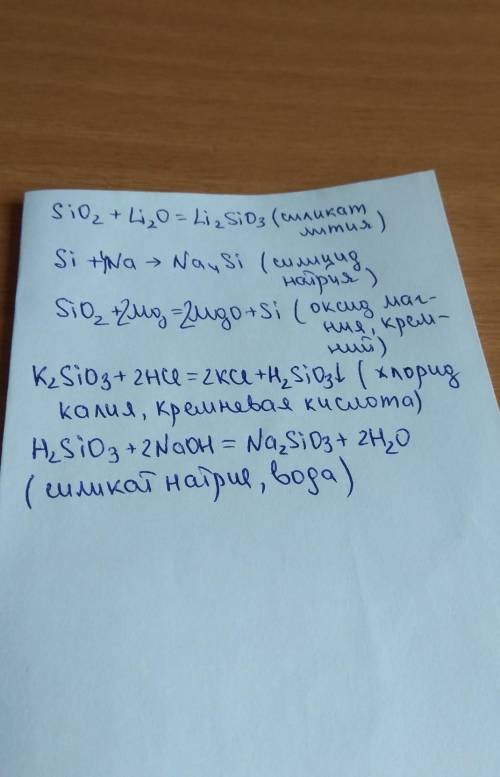 SiO2 + Li2O = Li2SiO3 (силикат
лития)
Si + 4Na → Na4Si (силицид
натрия)
SiO2 + 2Mg = 2MgO + Si (оксид маг-
ния, крем-
ний)
K2SiO3 + 2HCl = 2KCl + H2SiO3↓ (хлорид
калия, кремневая кислота)
H2SiO3 + 2NaOH = Na2SiO3 + 2H2O
(силикат натрия, вода)